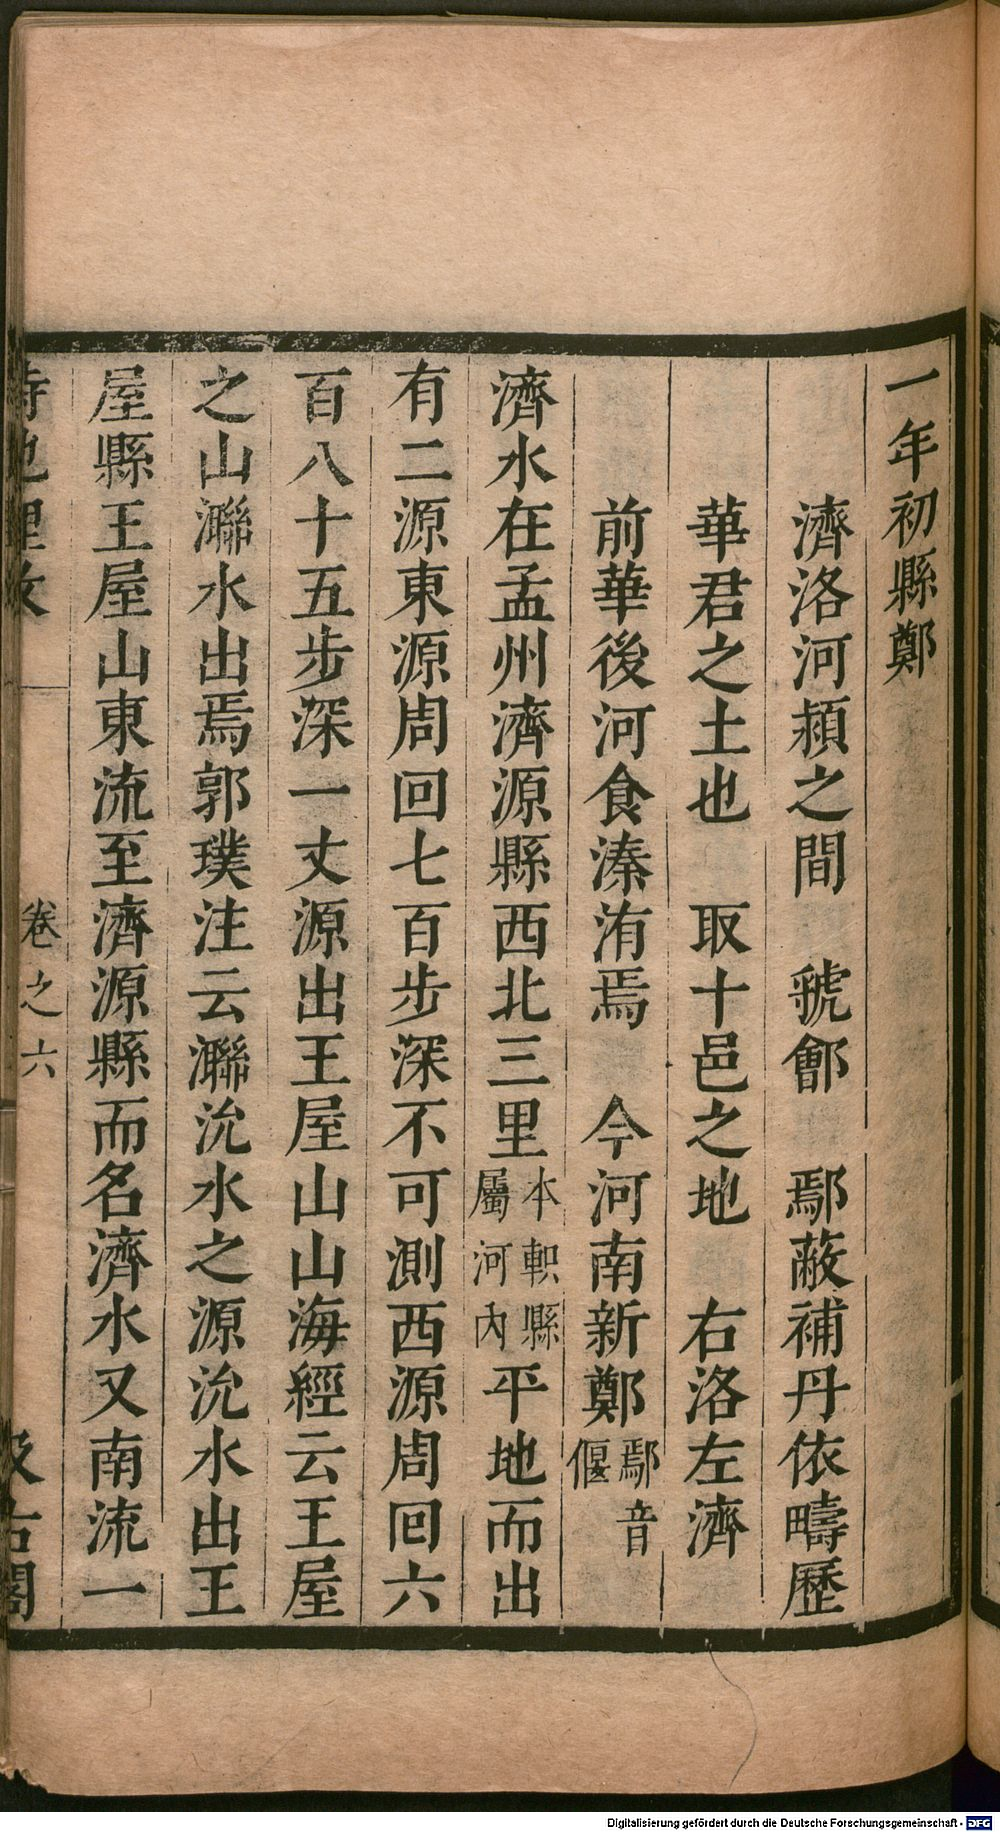 一年初縣鄭
濟洛河潁之間　虢鄶　鄢蔽補丹依疇歷
華君之土也　取十邑之地　右洛左濟
前華後河食溱洧焉　今河南新鄭鄢音偃
濟水在孟州濟源縣西北三里本軹縣屬河內平地而出
有二源東源周回七百步深不可測西源周回六
百八十五步深一丈源出王屋山山海經云王屋
之山㶌水出焉郭璞注云㶌沇水之源沇水出王
屋縣王屋山東流至濟源縣而名濟水又南流一
詩地理攷　卷之六　汲古閣
Digitalisierung gefördert durch die Deutsche Forschungsgemeinschaft - DFG